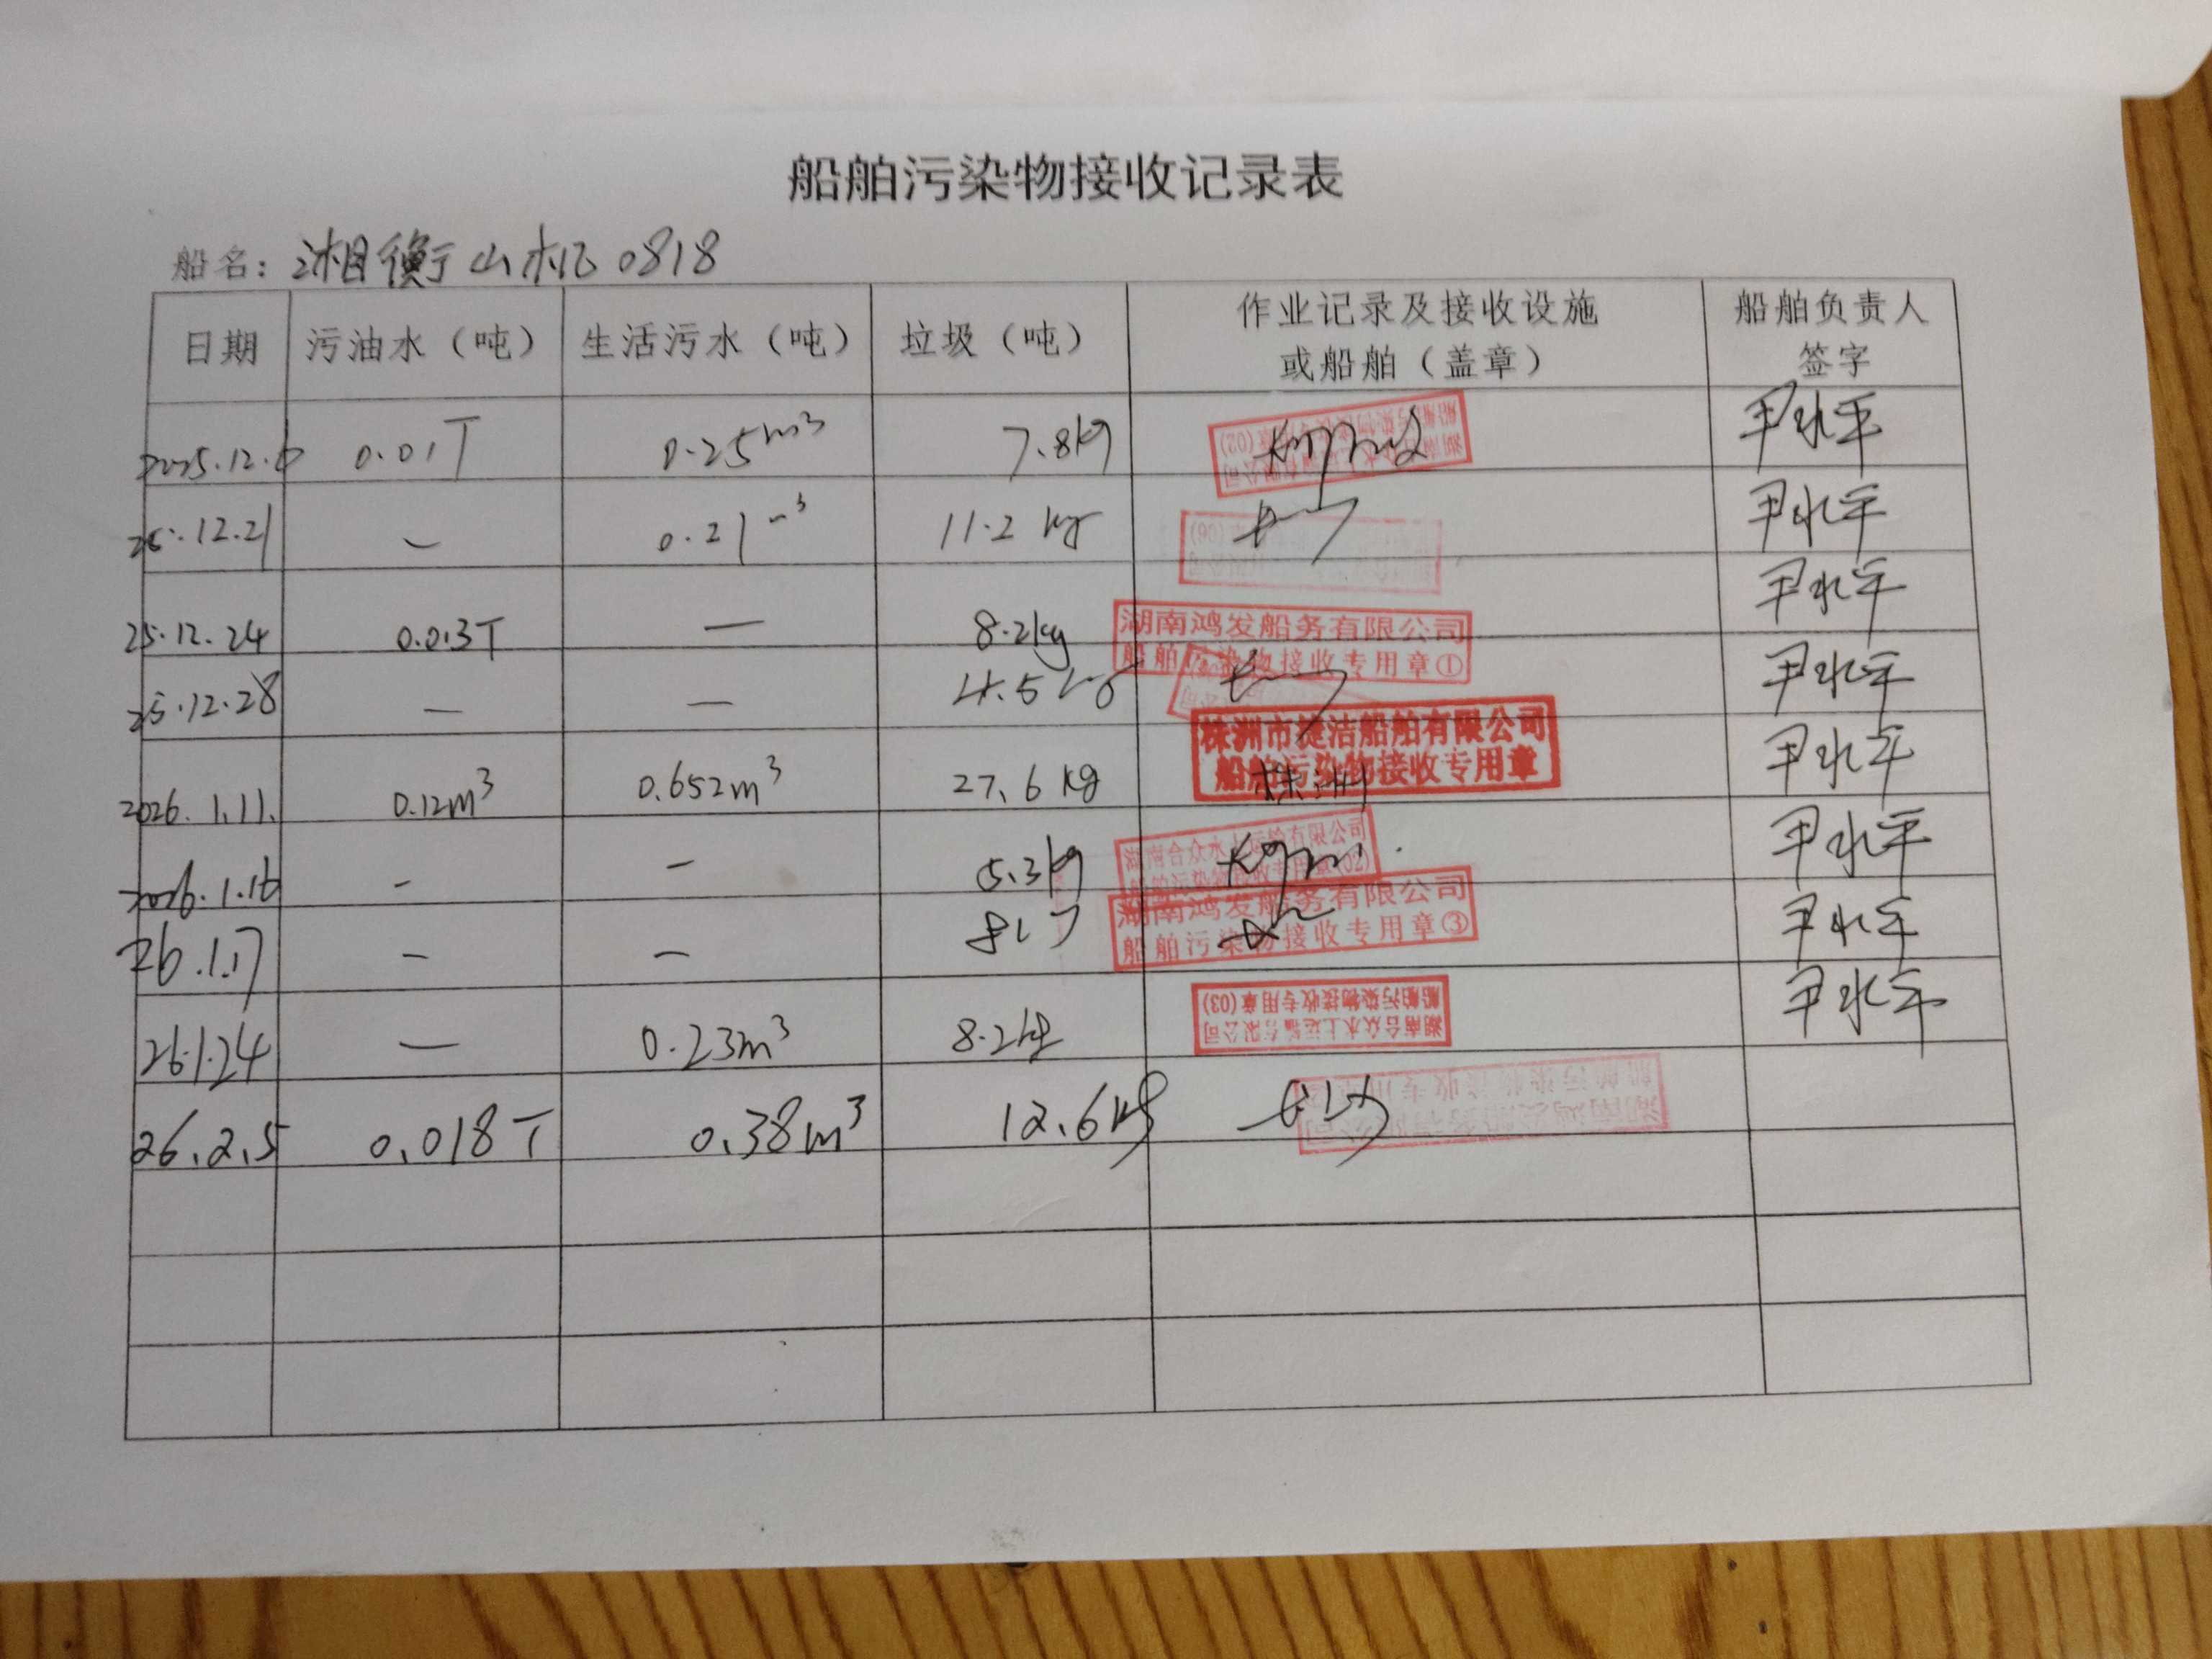 船舶污染物接收记录表
船名：湘衡山机0818
日期 污油水（吨） 生活污水（吨） 垃圾（吨） 作业记录及接收设施或船舶（盖章） 船舶负责人签字
0.01T 0.25m³ 7.8kg 尹水平
25.12.21 — 0.21m³ 11.2kg 尹水平
25.12.24 0.013T — 8.2kg 湖南鸿发船务有限公司 船舶污染物接收专用章① 尹水平
25.12.28 — — 4.5kg 尹水平
2026.1.11. 0.12m³ 0.652m³ 27.6kg 株洲市捷洁船舶有限公司 船舶污染物接收专用章 株洲 尹水平
2026.1.16 - - 5.3kg 湖南合众水上运输有限公司 船舶污染物接收专用章(02) 尹水平
26.1.17 - - 湖南鸿发船务有限公司 船舶污染物接收专用章③ 尹水平
26.1.24 — 0.23m³ 8.2kg 湖南合众水上运输有限公司 船舶污染物接收专用章(03) 尹水平
26.2.5 0.018T 0.38m³ 12.6kg